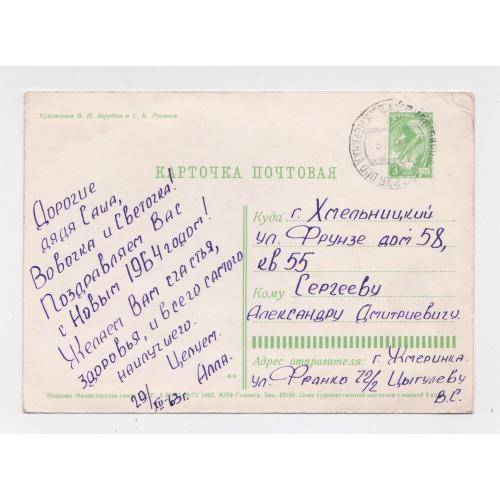 Художники В. И. Зарубин и С. К. Русаков.
КАРТОЧКА ПОЧТОВАЯ
Дорогие
дядя Саша,
Вовочка и Светочка!
Поздравляем Вас
с Новым 1964 годом!
Желаем Вам счастья,
здоровья, и всего самого
наилучшего.
Целуем.
Алла.
29/XII-63г.
Куда г. Хмельницкий
ул. Фрунзе дом 58,
кв 55
Кому Сергееву
Александру Дмитриевичу.
Адрес отправителя: г. Жмеринка.
ул. Франко 72/2 Цыгулеву
В.С.
Издание Министерства связи 1963. МПФ Гознака. Зак. Цена художественной карточки с маркой 4 коп.